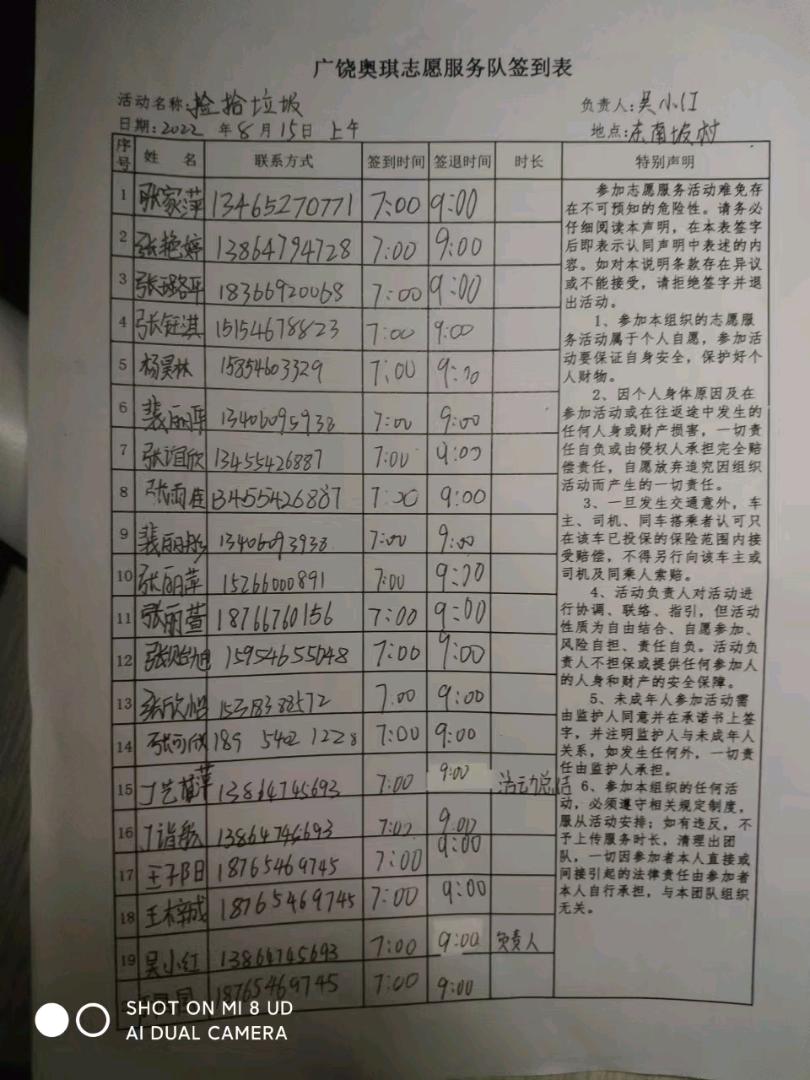 广饶奥琪志愿服务队签到表
活动名称:捡拾垃圾 负责人:吴小红
日期:2022 年 8 月 15 日 上午 地点:东南坡村
序号 姓 名 联系方式 签到时间 签退时间 时长 特别声明
1 张家萍 13465270771 7:00 9:00
2 张艳婷 13864794728 7:00 9:00
3 张璐平 18366920068 7:00 9:00
4 张钰淇 15154678823 7:00 9:00
5 杨昊林 15854603329 7:00 9:00
6 裴丽萍 13406095938 7:00 9:00
7 张谊欣 13455426887 7:00 9:00
8 张雨佳 13455426887 7:00 9:00
9 裴丽彤 13406093938 7:00 9:00
10 张丽萍 15266000891 7:00 9:00
11 张丽萱 18766760156 7:00 9:00
12 张贻旭 15954655648 7:00 9:00
13 张欣怡 15318388572 7:00 9:00
14 张可欣 189 5402 1228 7:00 9:00
15 丁艺 13864745693 7:00 9:00 活动总结
16 丁 13864745693 7:00 9:00
17 王子阳 18765469745 7:00 9:00
18 王梓诚 18765469745 7:00 9:00
19 吴小红 13864745693 7:00 9:00 负责人
18765469745 7:00 9:00
参加志愿服务活动难免存
在不可预知的危险性。请务必
仔细阅读本声明，在本表签字
后即表示认同声明中表述的内
容。如对本说明条款存在异议
或不能接受，请拒绝签字并退
出活动。
1、参加本组织的志愿服
务活动属于个人自愿，参加活
动要保证自身安全，保护好个
人财物。
2、因个人身体原因及在
参加活动或在往返途中发生的
任何人身或财产损害，一切责
任自负或由侵权人承担完全赔
偿责任，自愿放弃追究因组织
活动而产生的一切责任。
3、一旦发生交通意外，车
主、司机、同车搭乘者认可只
在该车已投保的保险范围内接
受赔偿，不得另行向该车主或
司机及同乘人索赔。
4、活动负责人对活动进
行协调、联络、指引，但活动
性质为自由结合、自愿参加、
风险自担、责任自负。活动负
责人不担保或提供任何参加人
的人身和财产的安全保障。
5、未成年人参加活动需
由监护人同意并在承诺书上签
字，并注明监护人与未成年人
关系，如发生任何外，一切责
任由监护人承担。
6、参加本组织的任何活
动，必须遵守相关规定制度，
服从活动安排；如有违反，不
予上传服务时长，清理出团
队，一切因参加者本人直接或
间接引起的法律责任由参加者
本人自行承担，与本团队组织
无关。
SHOT ON MI 8 UD
AI DUAL CAMERA